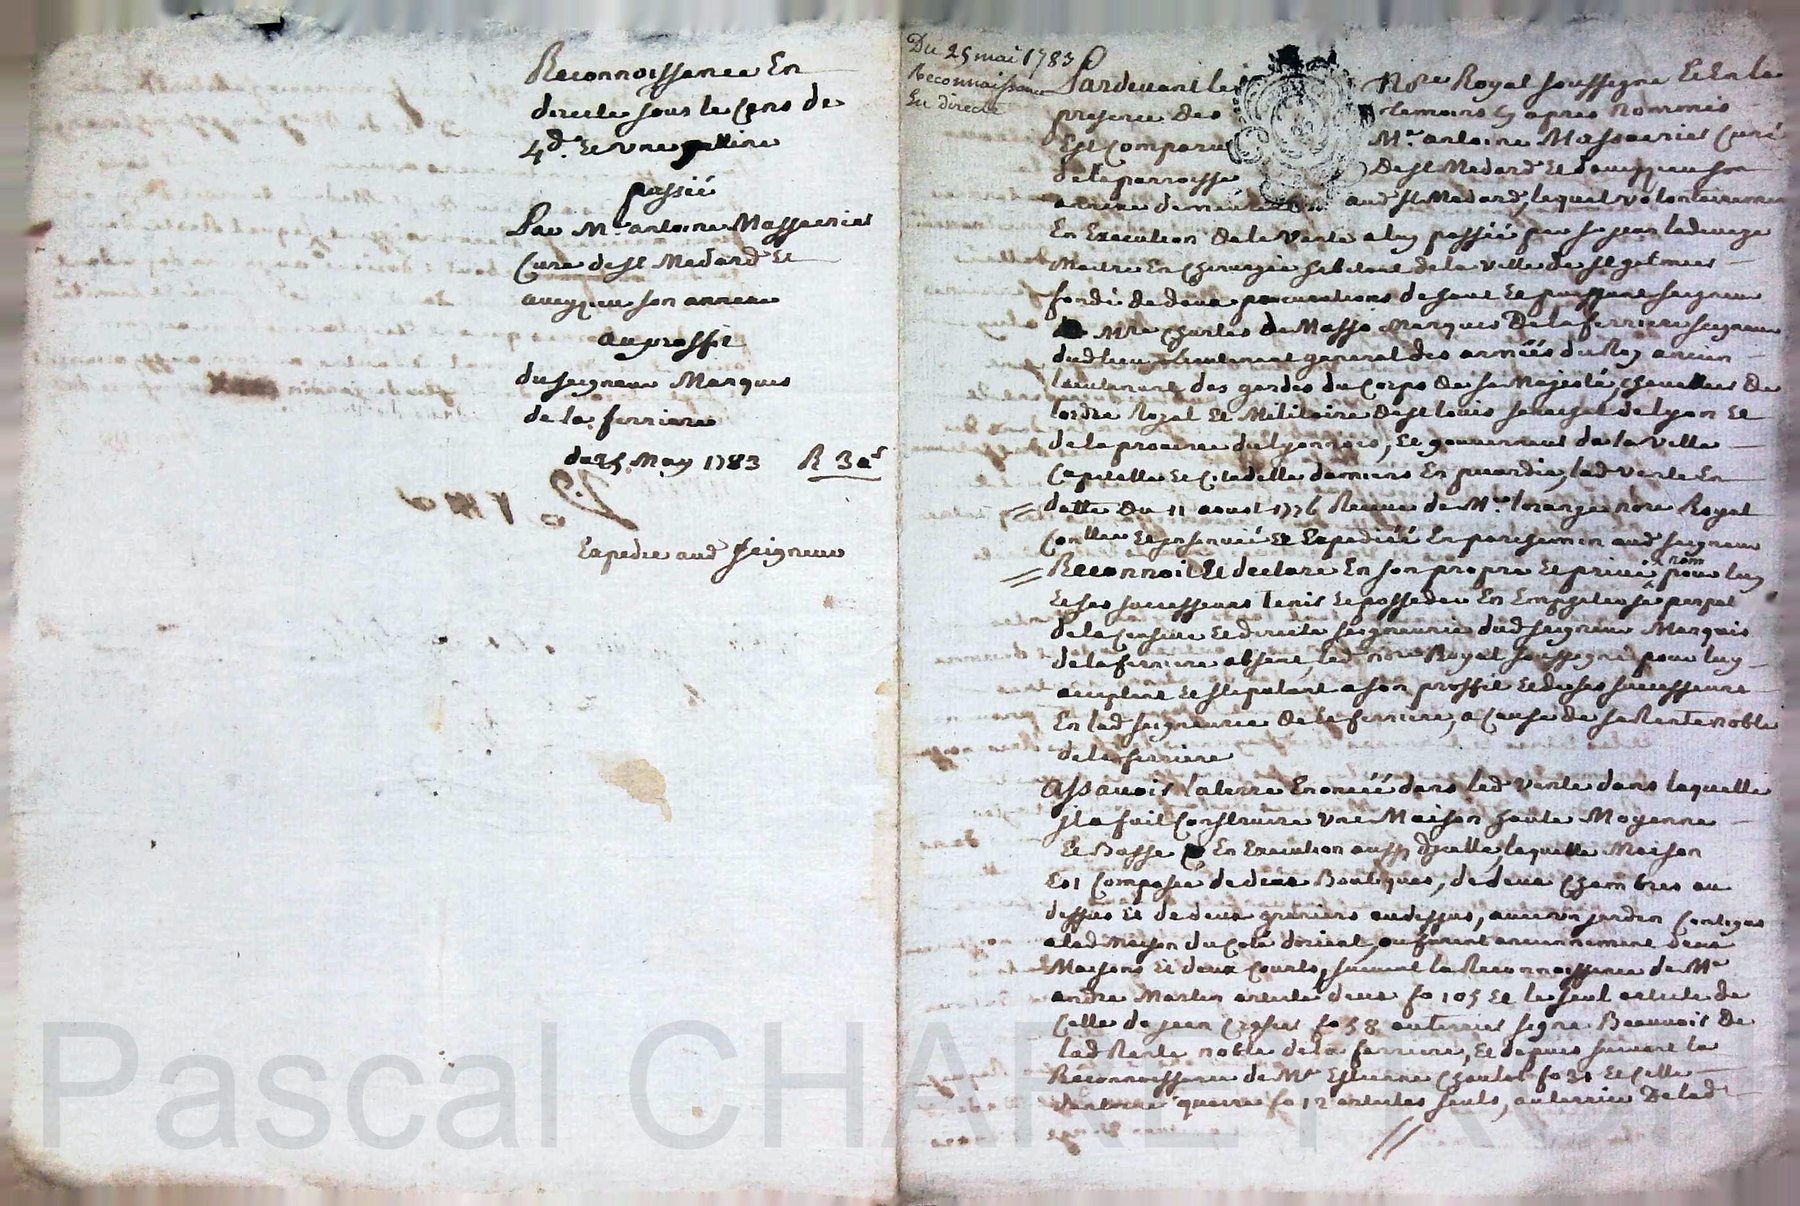 Reconnoissance En
directe sous le Cens de
4d. Et Une gelline
passée
Par Me antoine Massacrier
Curé de st Medard Et
aveyzieu son annexe
au proffit
du seigneur Marquis
de la ferriere
du 25 May 1783 R 3as
Expedié aud seigneur
Du 25 mai 1783
Reconnaissance
En directe
Pardevant le Nore Royal soussigné Et En la
presence des temoins Cy apres Nommés
Est Comparu Me antoine Massacrier Curé
de la parroisse de st Medard Et d'aveyzieu son
annexe demeurant aud st Medard, lequel volontairement
En Execution de la Vente a luy passée par sr jean ladevege
Maitre En Chirurgie habitant de la ville de st galmier
fondé de deux procurations de haut Et puissant seigneur
Mre Charles de Masso Marquis De la ferriere seigneur
dud lieu Lieutenant general des armées du Roy ancien
lieutenant des gardes du Corps de sa Majesté, chevallier de
lordre Royal Et Militaire de st louis senechal de lyon Et
de la province du lyonnois, Et gouverneur de la ville
Capitelle Et Citadelle damiens En picardie, lad vente En
datte du 11 aoust 1776 Recue de Me lorange nore Royal
Conllee Et insinuée Et Expediée En parchemin aud seigneur
Reconnoit Et declare En son propre Et privé nom pour luy
Et ses successeurs tenir Et posseder En Emphiteose perpel
de la Censive Et directe seigneurie dud seigneur Marquis
de la ferriere absent, led nore Royal soussigné pour luy
acceptant Et stipulant a son proffit Et de ses successeurs
En lad seigneurie de la ferriere, a Cause de sa Rente noble
de la ferriere
Assavoir la terre Enoncée dans lad Vente dans laquelle
il a fait Construire une Maison haute Moyenne
Et Basse En Execution aussy d'icelle, laquelle Maison
Est Composée de deux Boutiques, de deux Chambres au
dessus Et de deux greniers au dessus, avec un jardin Contigus
a lad Maison du Coté d'orient, ou furent anciennement deux
Maisons Et deux Courts, suivant la Reconnoissance de Me
andre Martin article deux fo 105 Et le seul article de
Celle de jean fo 58 au terrier signé Beauvois de
lad Rente noble de la ferriere, Et depuis suivant la
Reconnoissance de Me Estienne fo 31 Et Celle
fo 12 articles seuls, au terrier De lad
Pascal CHAREYRON